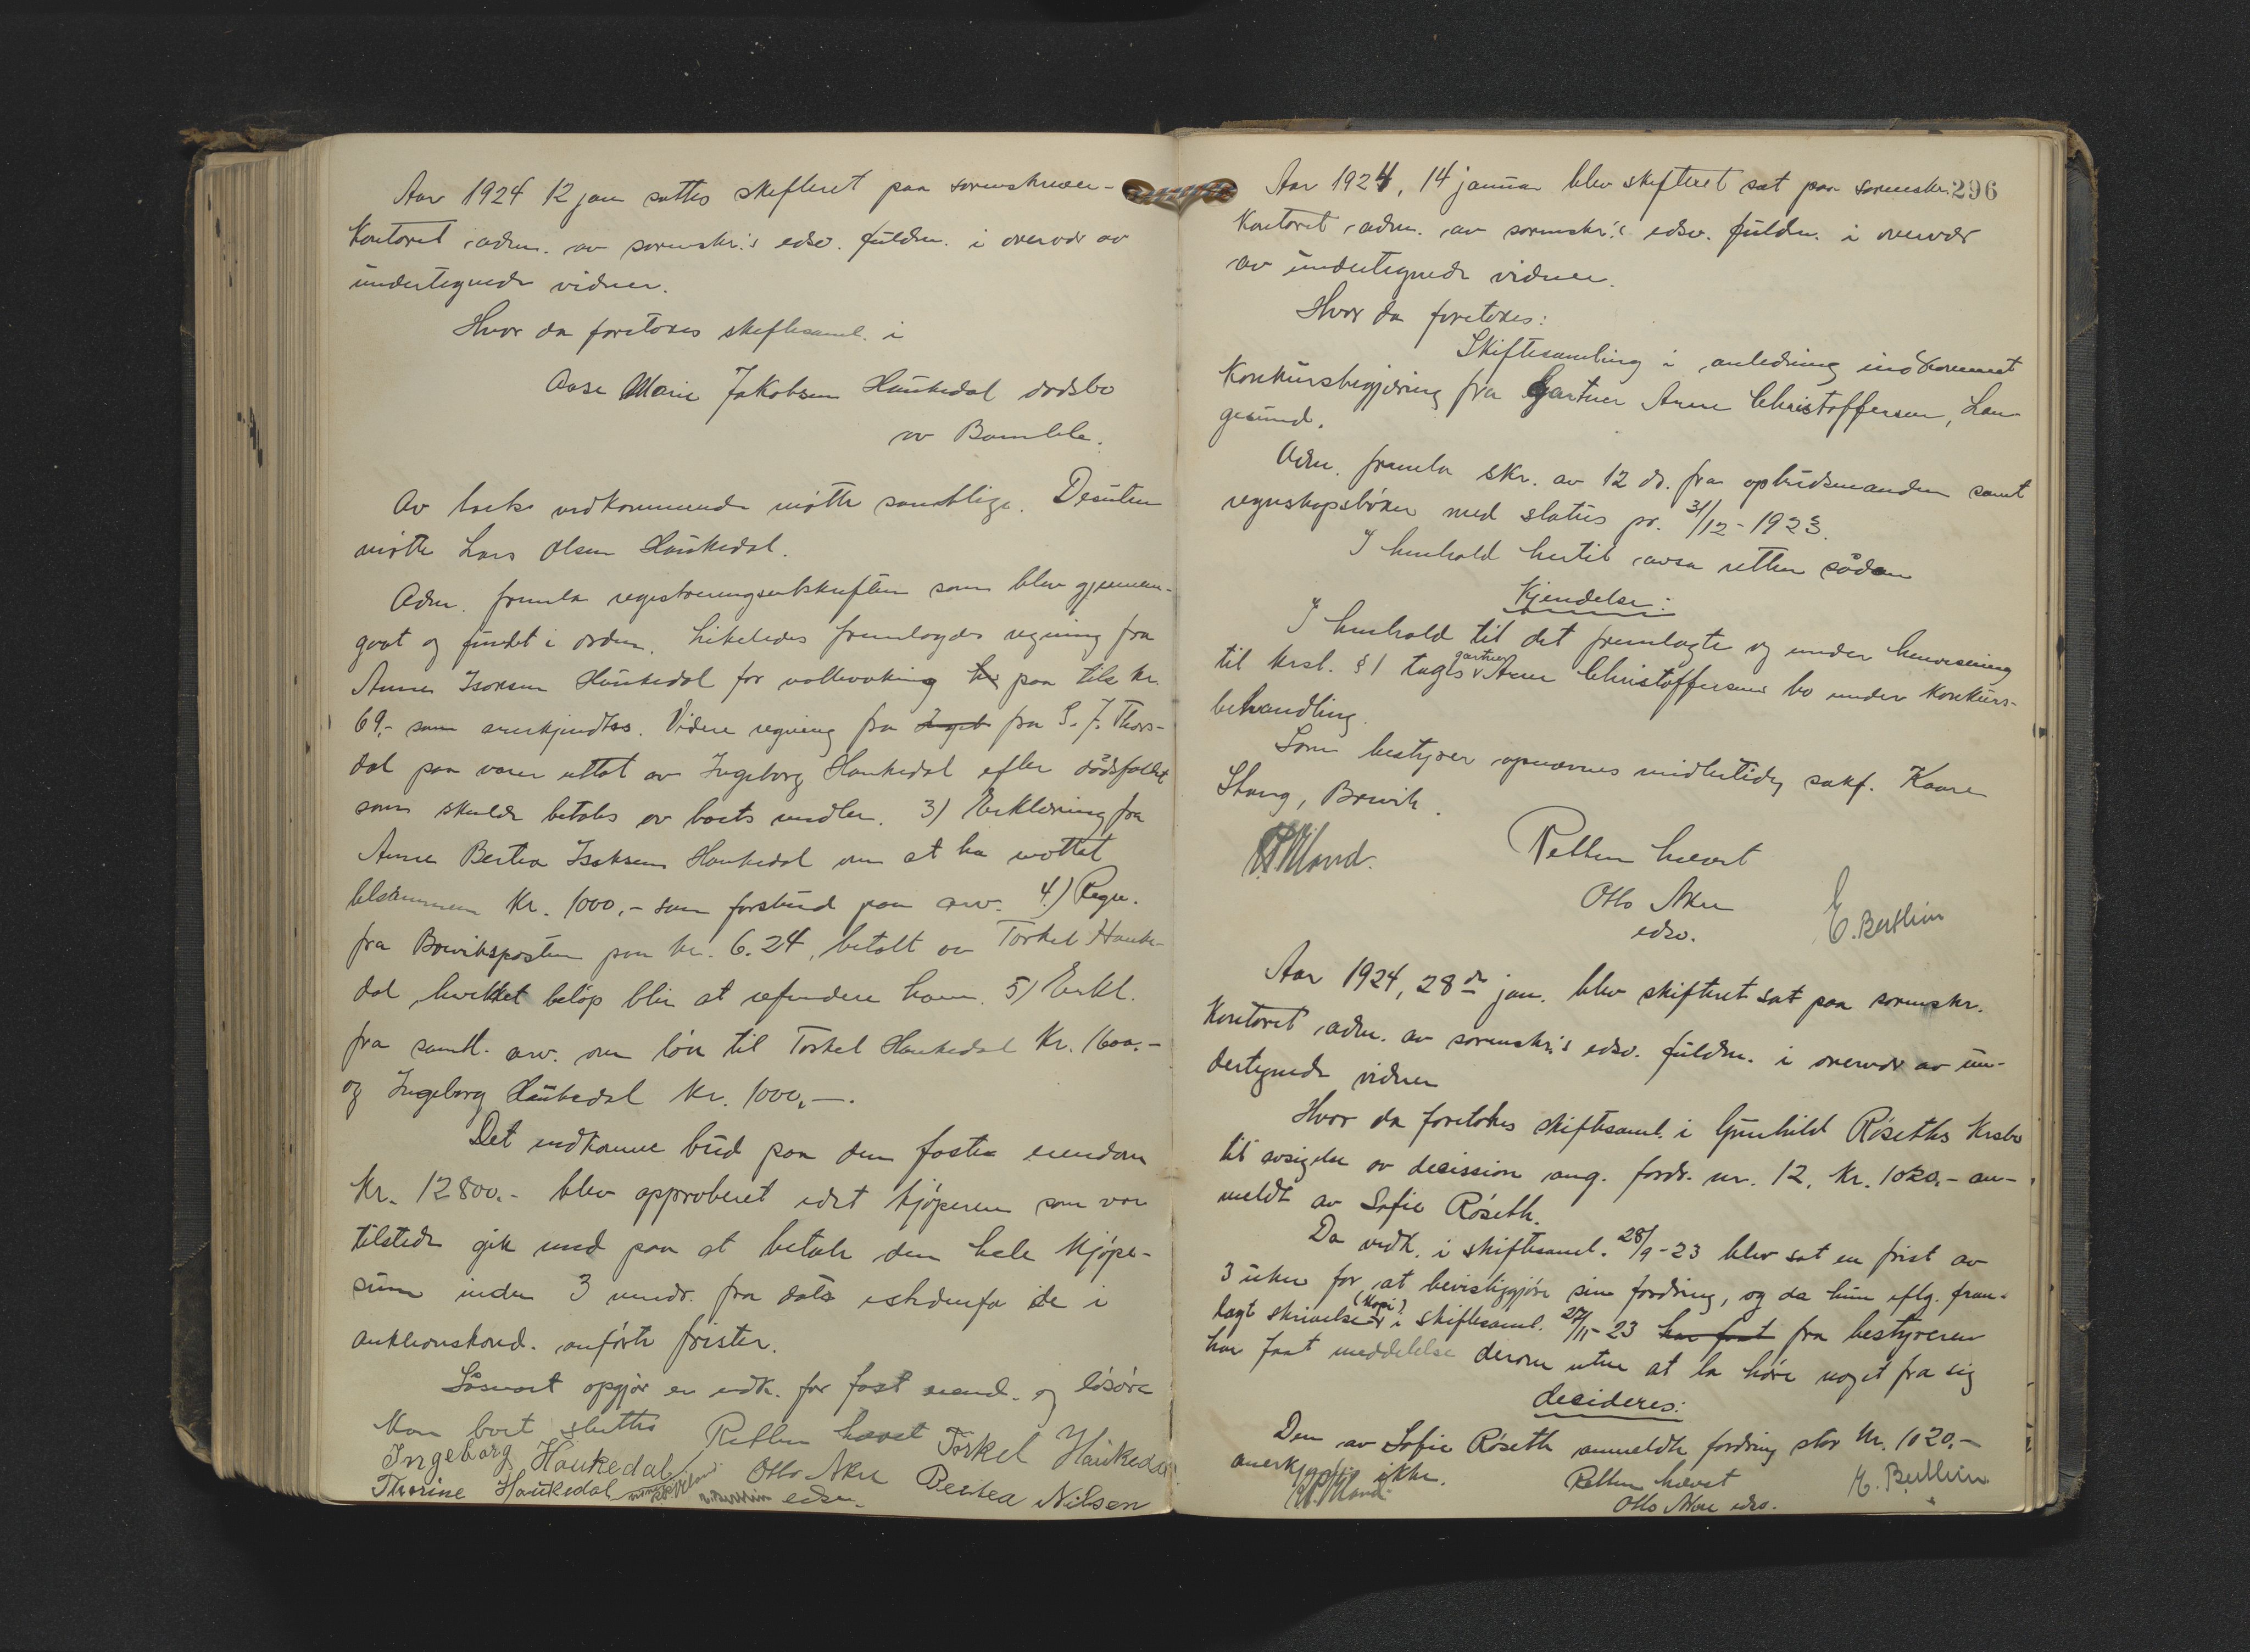 Aar 1924 12 jan sattes skifteret paa sorenskriver-
kontoret adm. av sorenskr.'s edsv. fuldm. i overvær av
undertegnede vidner.
Hvor da foretoges skiftesaml. i
Aase Marie Jakobsen Haukedal dødsbo
av Bamble.
Av boets vedkommende møtte samtlige. Desuten
møtte Lars Olsen Haukedal.
Adm. fremla registreringsutskriften som blev gjennem-
gaat og fundet i orden. Likeledes fremlagdes regning fra
Anne Isaksen Haukedal for paa tils. kr.
69,- som anerkjendtes. Videre regning fra Ingeb fra S. J. Thors-
dal paa varer uttat av Ingeborg Haukedal efter dødsfaldet
som skulde betales av boets midler. 3) Erklæring fra
Anne Bertea Isaksen Haukedal om at ha mottat
tilsammen Kr. 1000,- som forskud paa arv. 4) Regn.
fra Breviksposten paa kr. 6.24, betalt av Torkel Hauke-
dal hvilket beløp blir at refundere ham. 5) Erkl.
fra samtl. arv. om løn til Torkel Haukedal Kr. 1600,-
og Ingeborg Haukedal Kr. 1000,-.
Det indkomne bud paa den faste eiendom
Kr. 12800.- blev approberet idet kjøperen som var
tilstede gik med paa at betale den hele kjøpe-
sum inden 3 mndr. fra dato istedenfor de i
auktionskond. anførte frister.
Såsnart opgjør er indk. for fast eiend. og løsøre
kan boet sluttes Retten hævet Torkel Haukedal
Ingeborg Haukedal Otto Aker Bertea Nilsen
Thorine Haukedal E. Berthin edsv.
296
Aar 1924, 14 januar blev skifteret sat paa sorenskr.
kontoret adm. av sorenskr.'s edsv. fuldm. i overvær
av undertegnede vidner.
Hvor da foretokes:
Skiftesamling i anledning indkommet
konkursbegjæring fra Gartner Arne Christoffersen, Lan-
gesund.
Adm. fremla skr. av 12 ds. fra opbudsmanden samt
regnskapsbøker med status pr. 31/12-1923.
I henhold hertil avsa retten sådan
Kjendelse:
I henhold til det fremlagte og under henvisning
til krsl. §1 tages gartner Arne Christoffersens bo under konkurs-
behandling.
Som bestyrer opnævnes midlertidig sakf. Kaare
Stang, Brevik.
Retten hævet
Otto Aker
edsv.
E. Berthin
Aar 1924, 28de jan. blev skifteret sat paa sorenskr.
kontoret adm. av sorenskr.'s edsv. fuldm. i overvær av un-
dertegnede vidner
Hvor da foretokes skiftesaml. i Gunhild Røseths krsbo
til avsigelse av decission ang. fordr. nr. 12, kr. 1020,- an-
meldt av Sofie Røseth.
Da vedk. i skiftesaml. 28/9-23 blev sat en frist av
3 uker for at bevisliggjøre sin fordring, og da hun iflg. frem-
lagt skrivelse (kopi) i skiftesaml. 27/11-23 har faat fra bestyreren
har faat meddelelse derom uten at la høre noget fra sig
decideres:
Den av Sofie Røseth anmeldte fordring stor kr. 1020,-
anerkjendes ikke.
Retten hævet
Otto Aker edsv.
E. Berthin